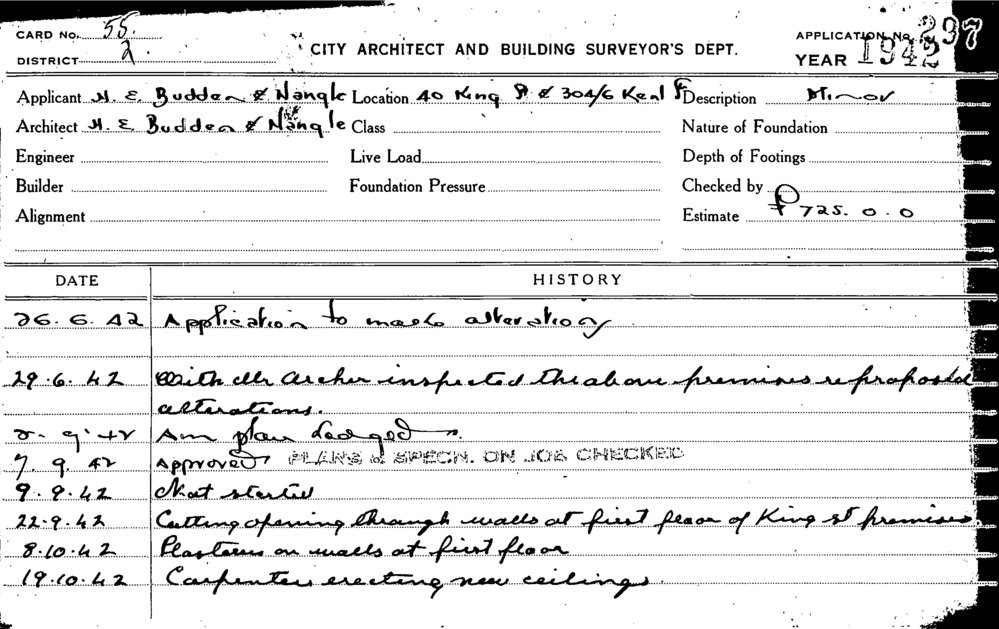 CARD No. 55.
DISTRICT 2
CITY ARCHITECT AND BUILDING SURVEYOR'S DEPT.
APPLICATION No. 297
YEAR 1942
Applicant H. E. Budden & Nangle Location 40 King St & 304/6 Kent St Description Minor
Architect H. E. Budden & Nangle Class Nature of Foundation
Engineer Live Load Depth of Footings
Builder Foundation Pressure Checked by
Alignment Estimate £725.0.0
DATE HISTORY
26.6.42 Application to make alteration
29.6.42 With Mr Archer inspected the above premises re proposed
alterations.
9.42 Am plan Lodged
7.9.42 Approved PLANS & SPECN. ON JOB CHECKED
9.9.42 Not started
22.9.42 Cutting opening through walls at first floor of King st premises.
8.10.42 Plasterers on walls at first floor
19.10.42 Carpenters erecting new ceilings.